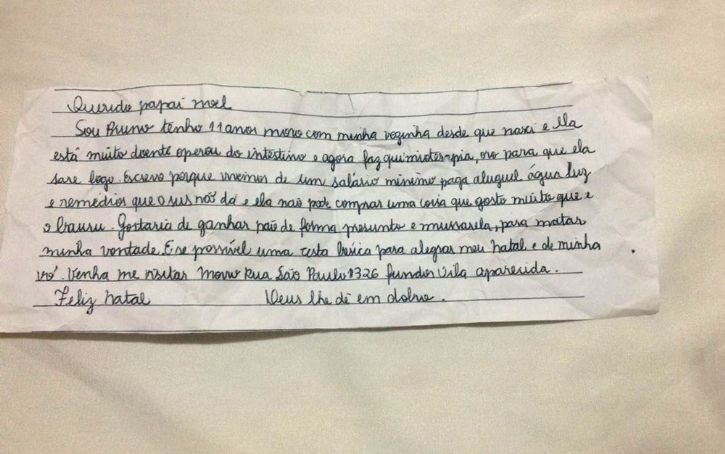 Querido papai noel
Sou Bruno tenho 11 anos moro com minha vozinha desde que nasci e Ela
está muito doente operou do intestino e agora faz quimioterapia, oro para que ela
sare logo. Escrevo porque vivemos de um salário minimo paga aluguel água luz
e remédios que o sus não dá e ela não pode comprar uma coisa que gosto muito que e
o bauru. Gostaria de ganhar pão de forma presunto e mussarela, para matar
minha vontade. E se possível uma cesta básica para alegrar meu natal e de minha
vó. Venha me visitar Moro Rua São Paulo 1326 fundos Vila aparecida.
Feliz natal Deus lhe dê em dobro.